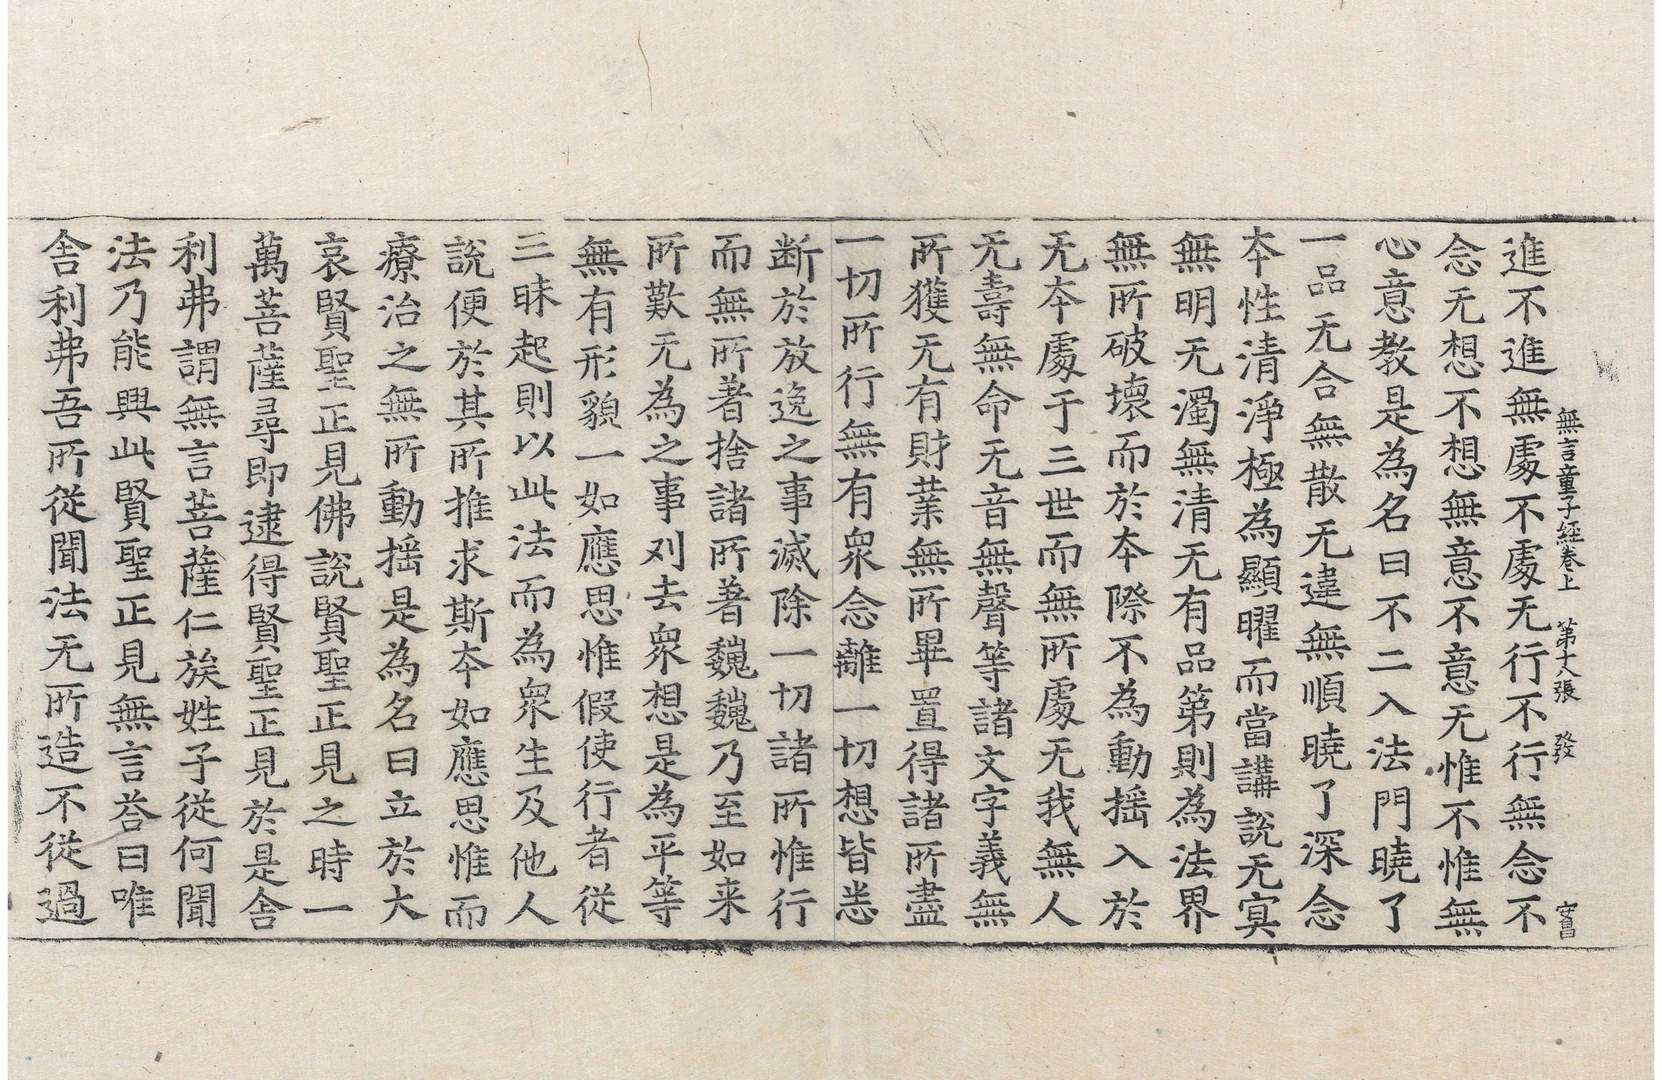 無言童子經卷上 第十八張 發 安昌
進不進無處不處无行不行無念不
念无想不想無意不意无惟不惟無
心意教是為名曰不二入法門曉了
一品无合無散无違無順曉了深念
本性清淨極為顯曜而當講說无㝠
無明无濁無清无有品第則為法界
無所破壞而於本際不為動揺入於
无本處于三世而無所處无我無人
无壽無命无音無聲等諸文字義無
所獲无有財業無所畢置得諸所盡
一切所行無有衆念離一切想皆悉
断於放逸之事滅除一切諸所惟行
而無所著捨諸所著巍巍乃至如来
所歎无為之事刈去衆想是為平等
無有形貌一如應思惟假使行者從
三昧起則以此法而為衆生及他人
說便於其所推求斯本如應思惟而
療治之無所動揺是為名曰立於大
哀賢聖正見佛說賢聖正見之時一
萬菩薩尋即逮得賢聖正見於是舍
利弗謂無言菩薩仁族姓子從何聞
法乃能興此賢聖正見無言荅曰唯
舍利弗吾所從聞法无所造不從過